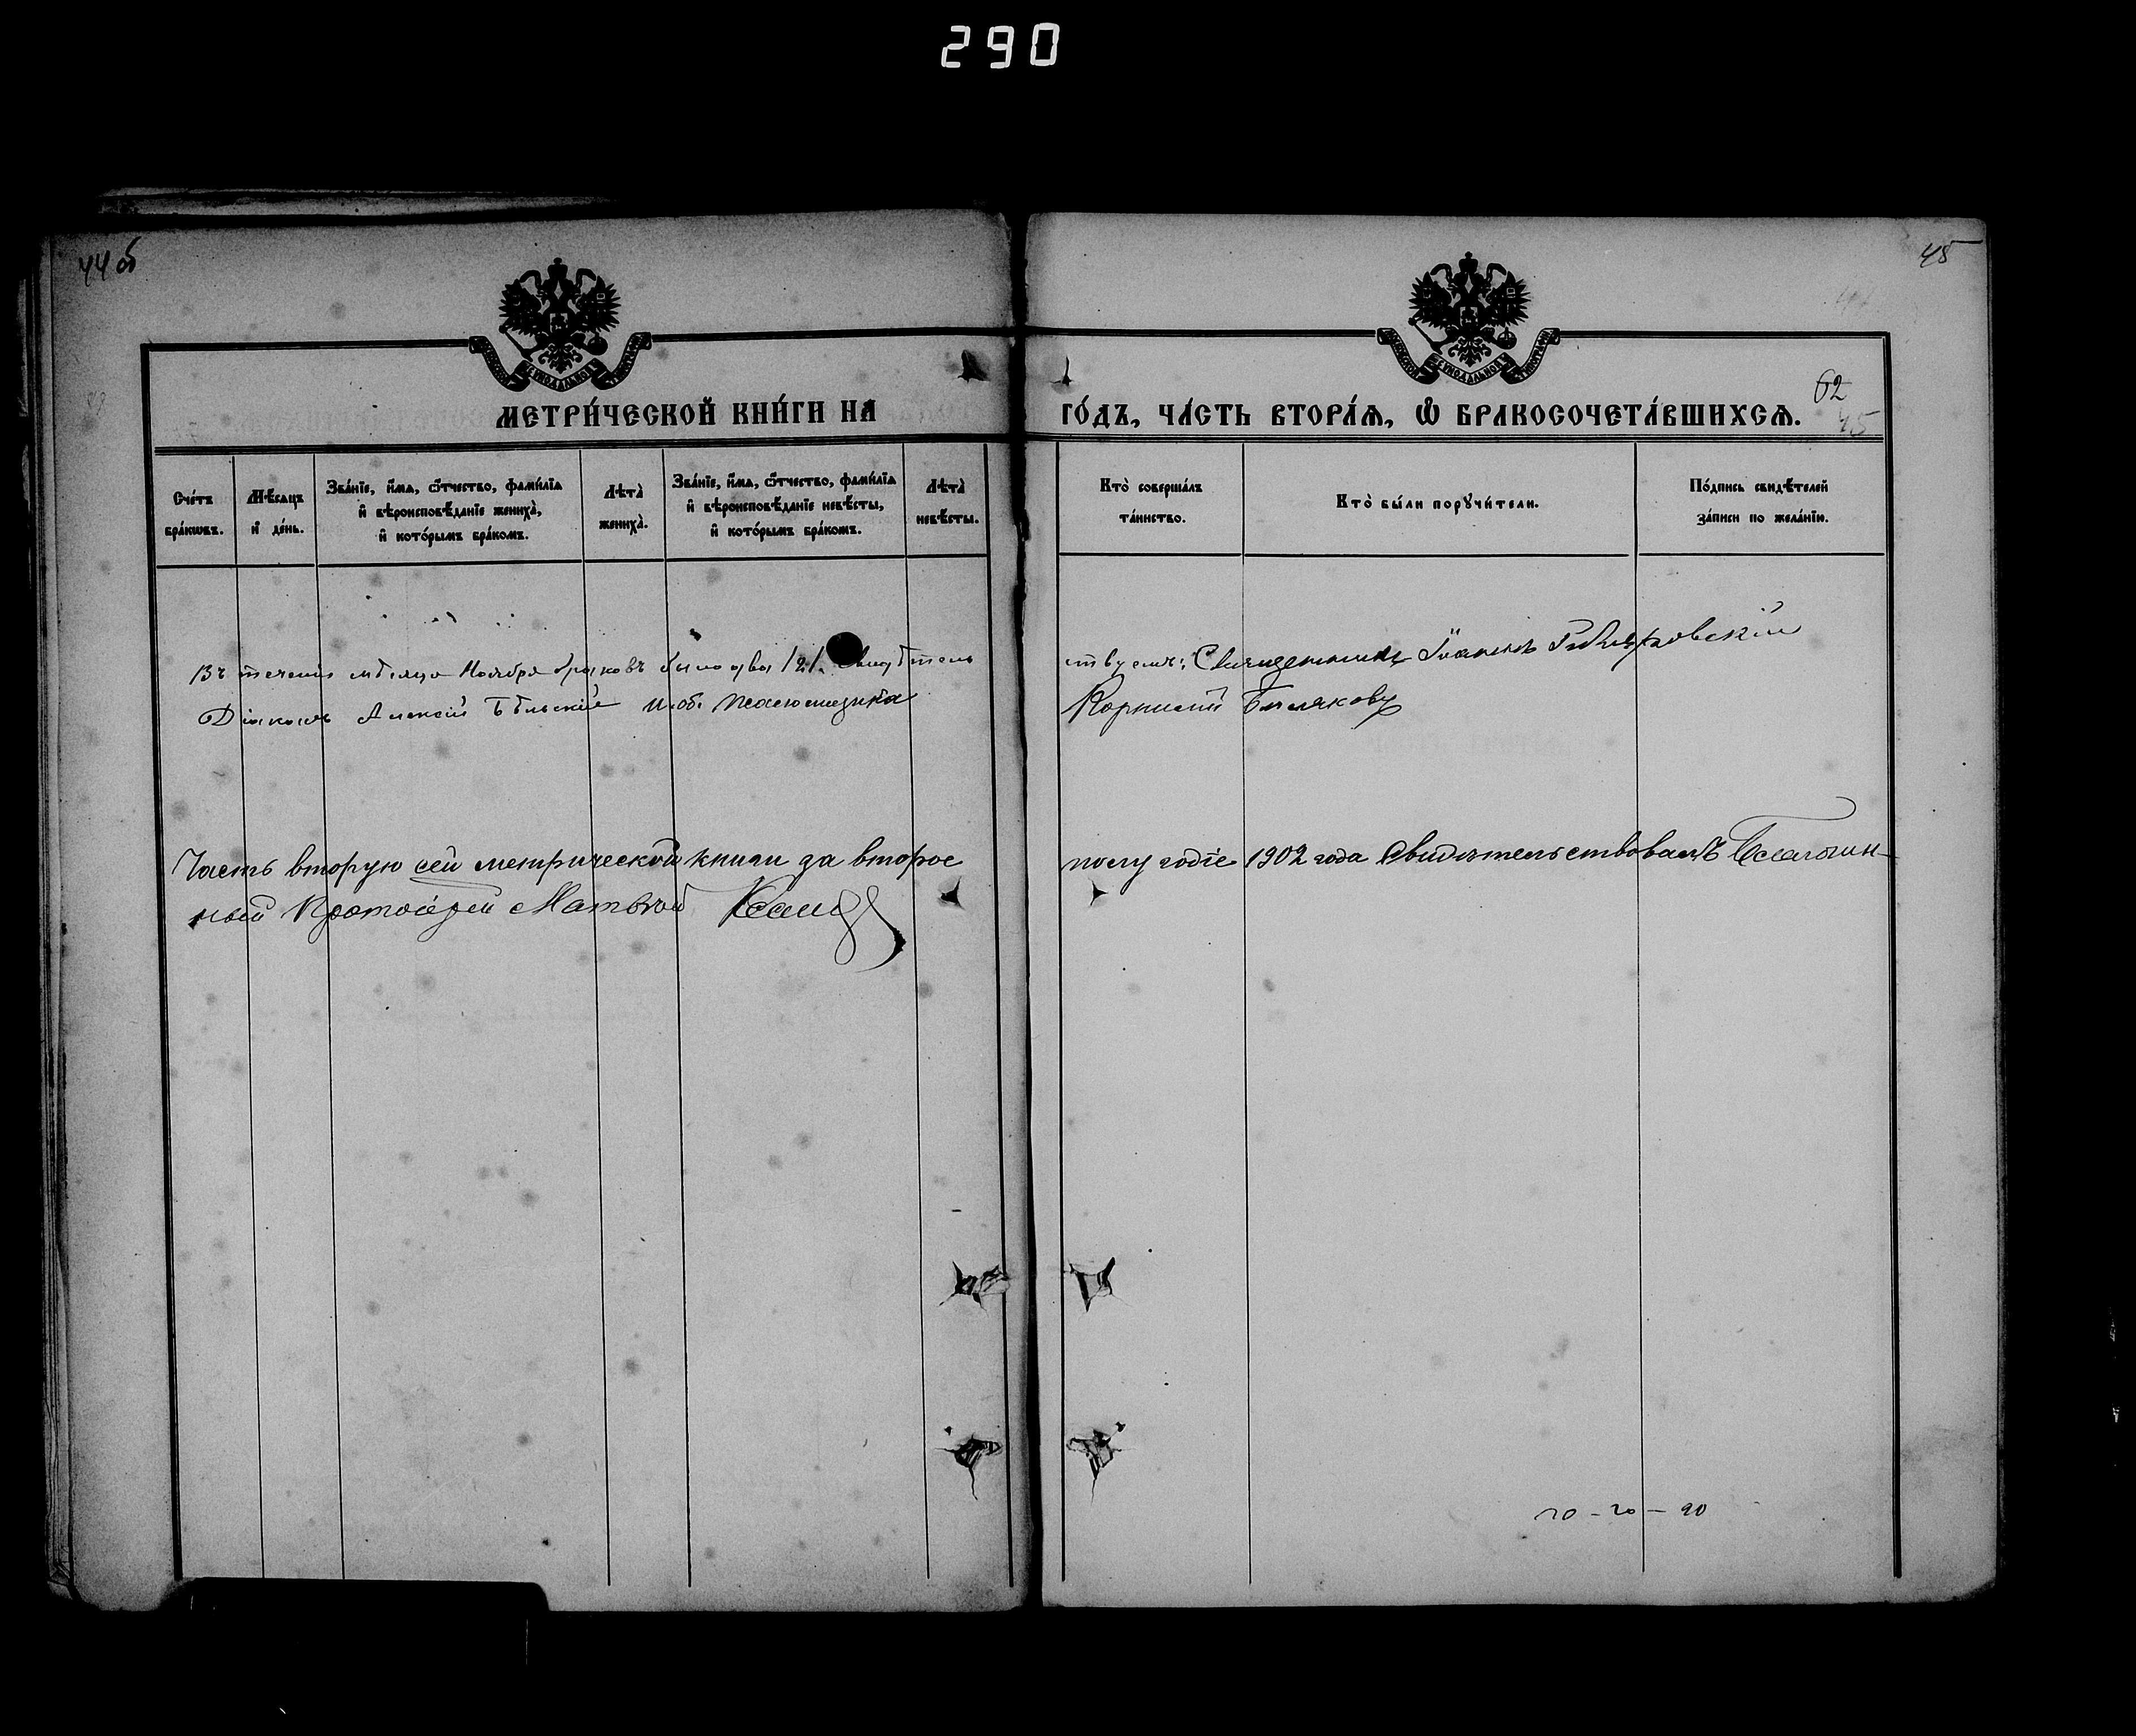 290
44 об
45
62
45
МЕТРИ́ЧЕСКОЙ КНИ́ГИ НА ГО́ДЪ, ЧА́СТЬ ВТОРА́Ѧ, Ѽ БРАКОСОЧЕТА́ВШИХСѦ.
Сче́тъ бра́кѡвъ.
Мѣ́сѧцъ и҆ де́нь.
Зва́нїе, и҆́мѧ, ѻ҆́тчество, фами́лїѧ
и҆ вѣроисповѣ́данїе жениха̀,
и҆ кото́рымъ бра́комъ.
Лѣта̀ жениха̀.
Зва́нїе, и҆́мѧ, ѻ҆́тчество, фами́лїѧ
и҆ вѣроисповѣ́данїе невѣ́сты,
и҆ кото́рымъ бра́комъ.
Лѣта̀ невѣ́сты.
Кто̀ соверша́лъ та́инство.
Кто̀ бы́ли порꙋчи́тели.
По́дпись свидѣ́телей
за́писи по жела́нїю.
Въ теченіи мѣсяца Ноября браковъ было два /2/. Свидѣтель
ствуемъ: Священникъ Іоаннъ
Діаконъ Алексій Бѣльскій И. об. псаломщика
Корнилій
Часть вторую сей метрической книги за второе
полугодіе 1902 года свидѣтельствовалъ Благочин-
ный Протоіерей Матвѣй
20-20-90